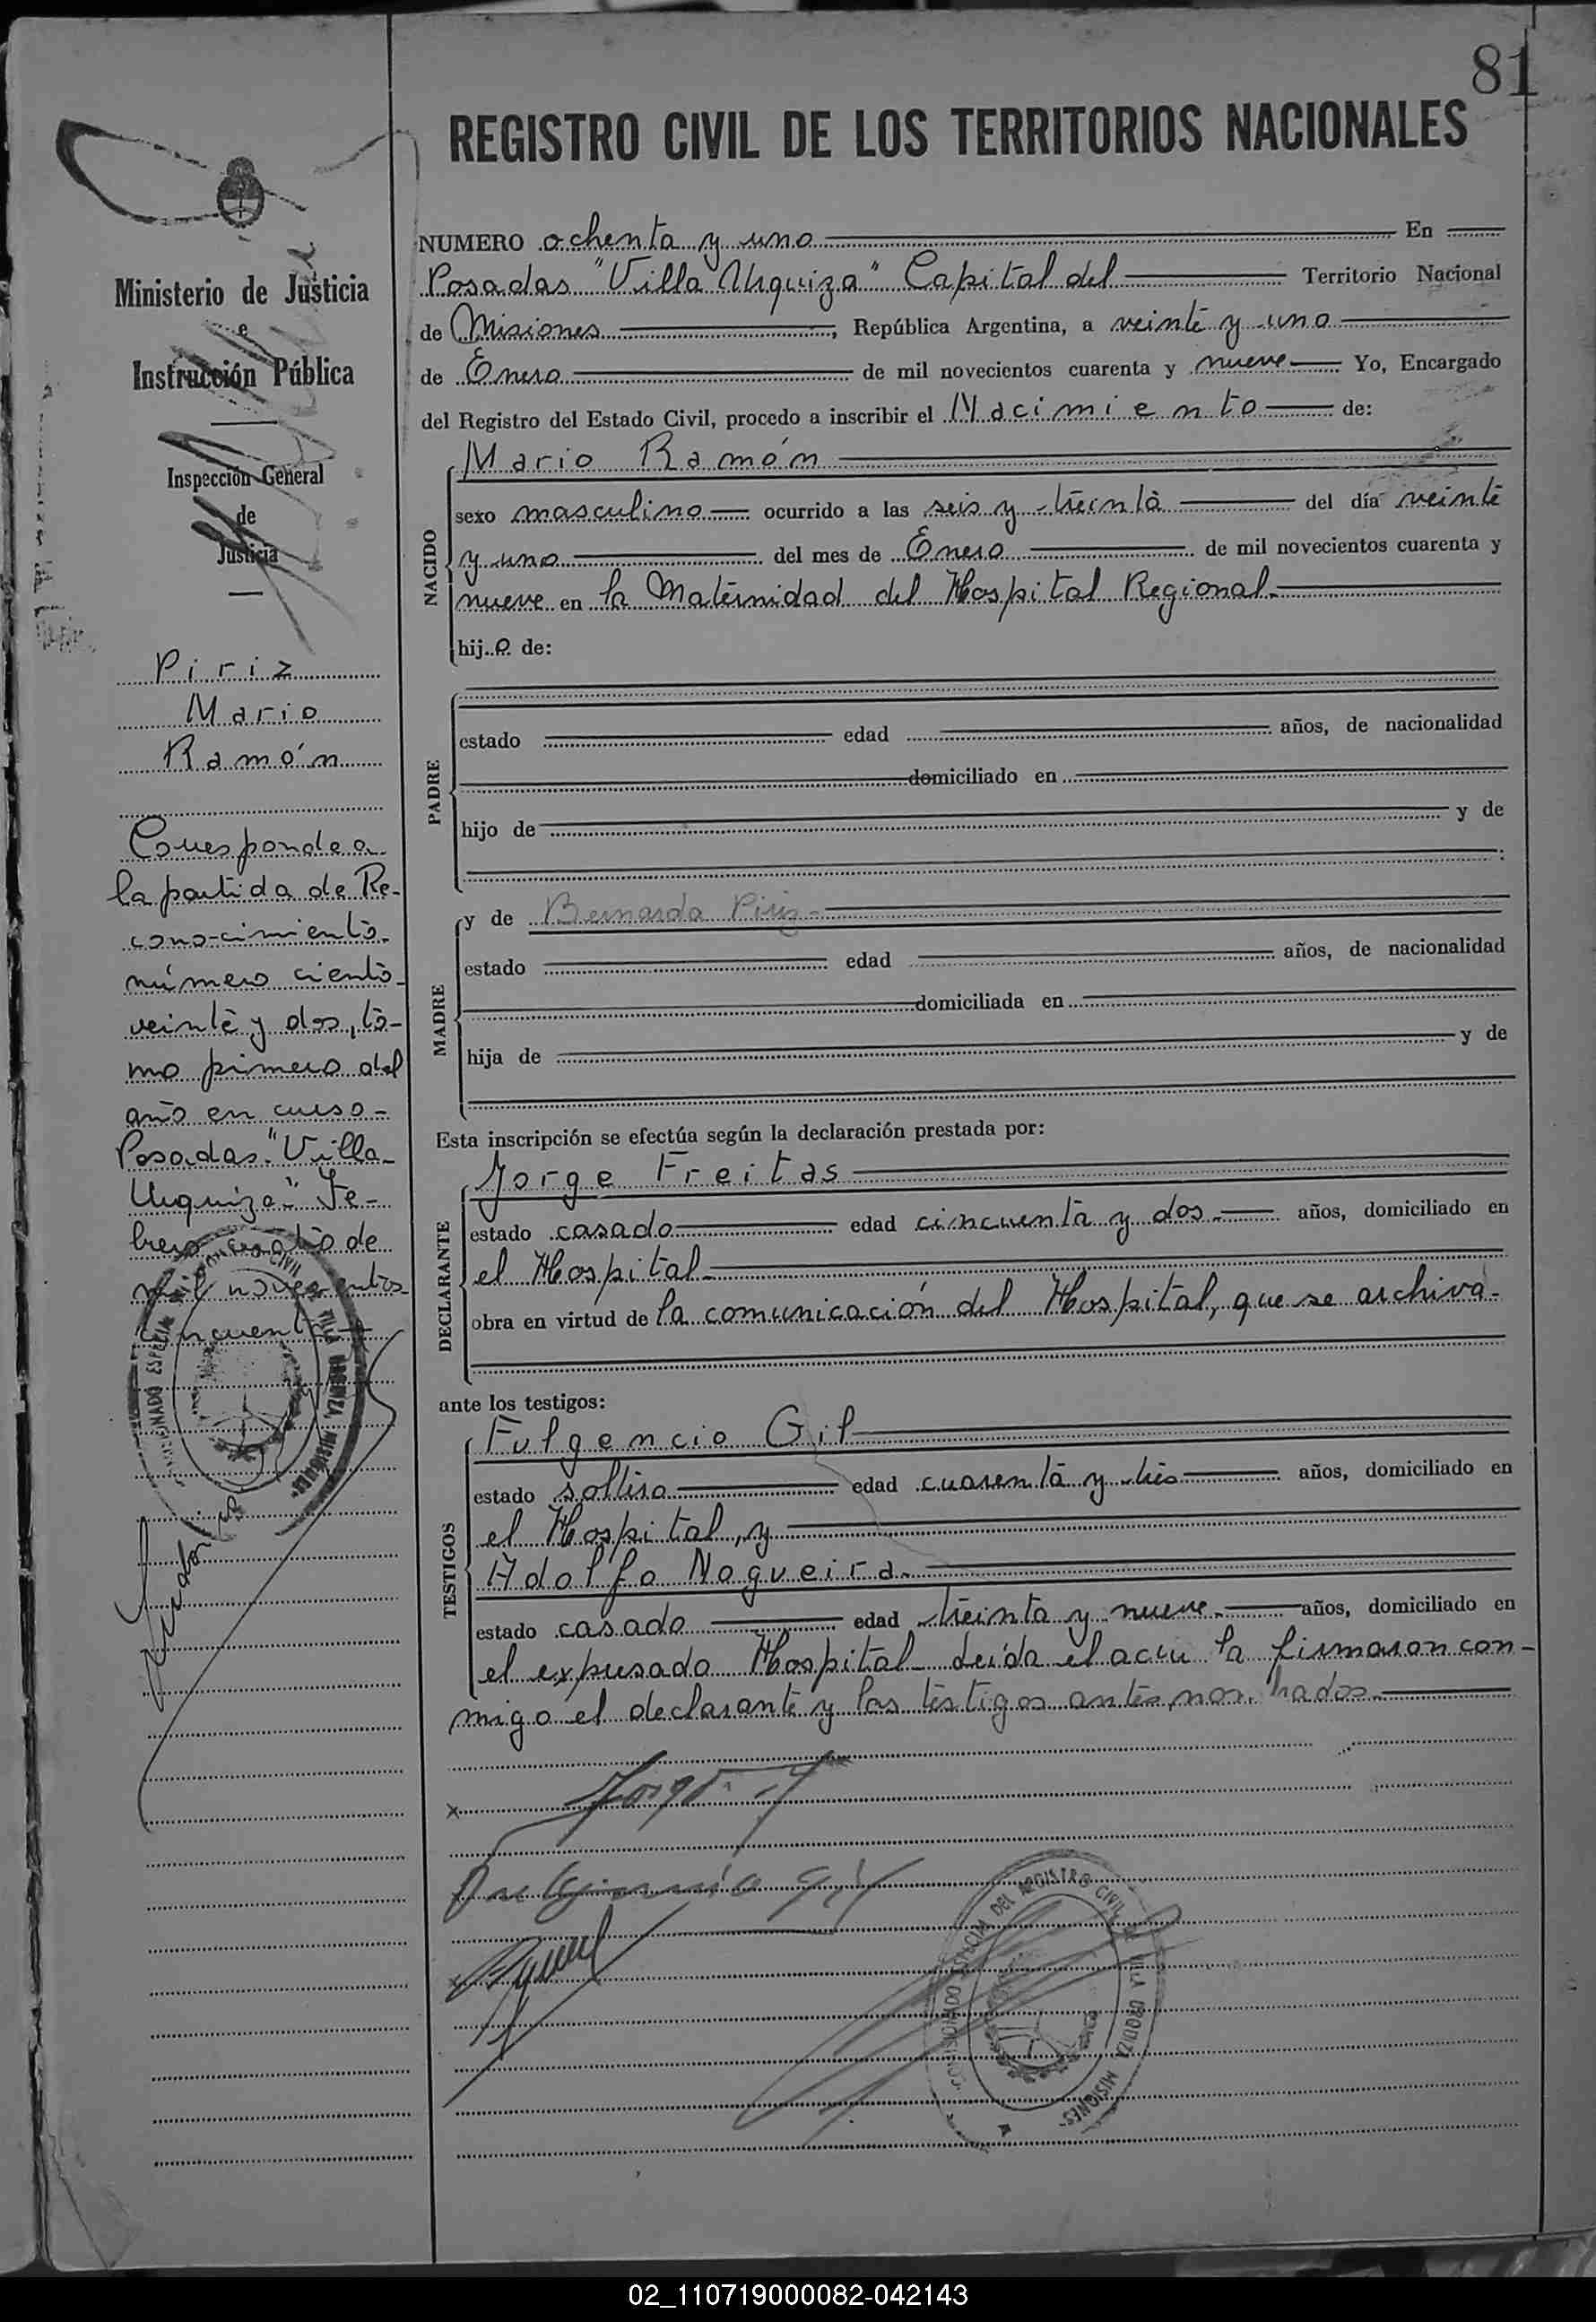 81
REGISTRO CIVIL DE LOS TERRITORIOS NACIONALES
Ministerio de Justicia
e
Instrucción Pública
Inspección General
de
Justicia
Piriz
Mario
Ramón
Corresponde a
la partida de Re-
cono-cimiento
número ciento
veinte y dos, to-
mo primero del
año en curso -
Posadas "Villa
Urquiza" Fe-
brero cuatro de
mil novecientos
cincuenta
NUMERO ochenta y uno En
Posadas "Villa Urquiza" Capital del Territorio Nacional
de Misiones, República Argentina, a veinte y uno
de Enero de mil novecientos cuarenta y nueve Yo, Encargado
del Registro del Estado Civil, procedo a inscribir el Nacimiento de:
NACIDO
Mario Ramón
sexo masculino ocurrido a las seis y treinta del día veinte
y uno del mes de Enero de mil novecientos cuarenta y
nueve en la Maternidad del Hospital Regional
hijo de:
PADRE
estado edad años, de nacionalidad
domiciliado en
hijo de y de
MADRE
y de Bernarda Piriz
estado edad años, de nacionalidad
domiciliada en
hija de y de
Esta inscripción se efectúa según la declaración prestada por:
DECLARANTE
Jorge Freitas
estado casado edad cincuenta y dos años, domiciliado en
el Hospital
obra en virtud de la comunicación del Hospital, que se archiva
ante los testigos:
TESTIGOS
Fulgencio Gil
estado soltero edad cuarenta y tres años, domiciliado en
el Hospital, y
Adolfo Nogueira
estado casado edad treinta y nueve años, domiciliado en
el expresado Hospital Leída el acta la firmaron con-
migo el declarante y los testigos antes nombrados
Fulgencio Gil
COMISIONADO ESPECIAL DEL REGISTRO CIVIL DE VILLA URQUIZA, MISIONES
COMISIONADO ESPECIAL DEL REGISTRO CIVIL DE VILLA URQUIZA MISIONES
02_110719000082-042143